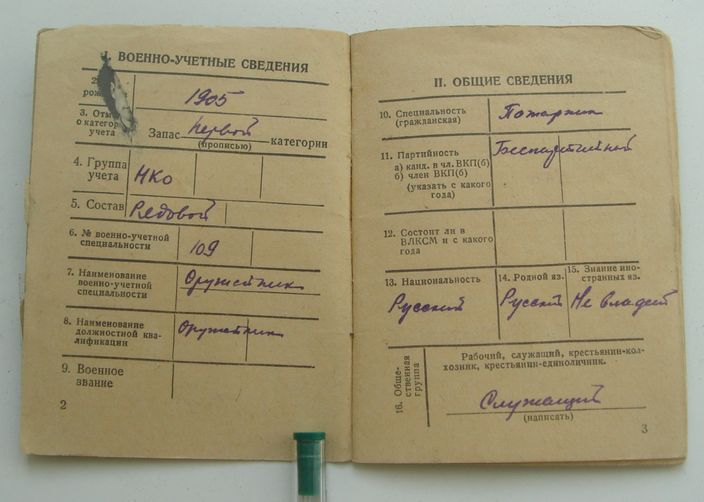 I. ВОЕННО-УЧЕТНЫЕ СВЕДЕНИЯ
1905
3.
о категор
учета
Запас первой категории
(прописью)
4. Группа
учета
НКО
5. Состав Рядовой
6. № военно-учетной
специальности
109
7. Наименование
военно-учетной
специальности
Оружейник
8. Наименование
должностной ква-
лификации
Оружейник
9. Военное
звание
2
II. ОБЩИЕ СВЕДЕНИЯ
10. Специальность
(гражданская)
Пожарник
11. Партийность
а) канд. в чл. ВКП(б)
б) член ВКП(б)
(указать с какого
года)
Беспартийный
12. Состоит ли в
ВЛКСМ и с какого
года
13. Национальность
Русский
14. Родной яз.
Русский
15. Знание ино-
странных яз.
Не владеет
16. Обще-
ственная
группа
Рабочий, служащий, крестьянин-кол-
хозник, крестьянин-единоличник.
Служащий
(написать)
3